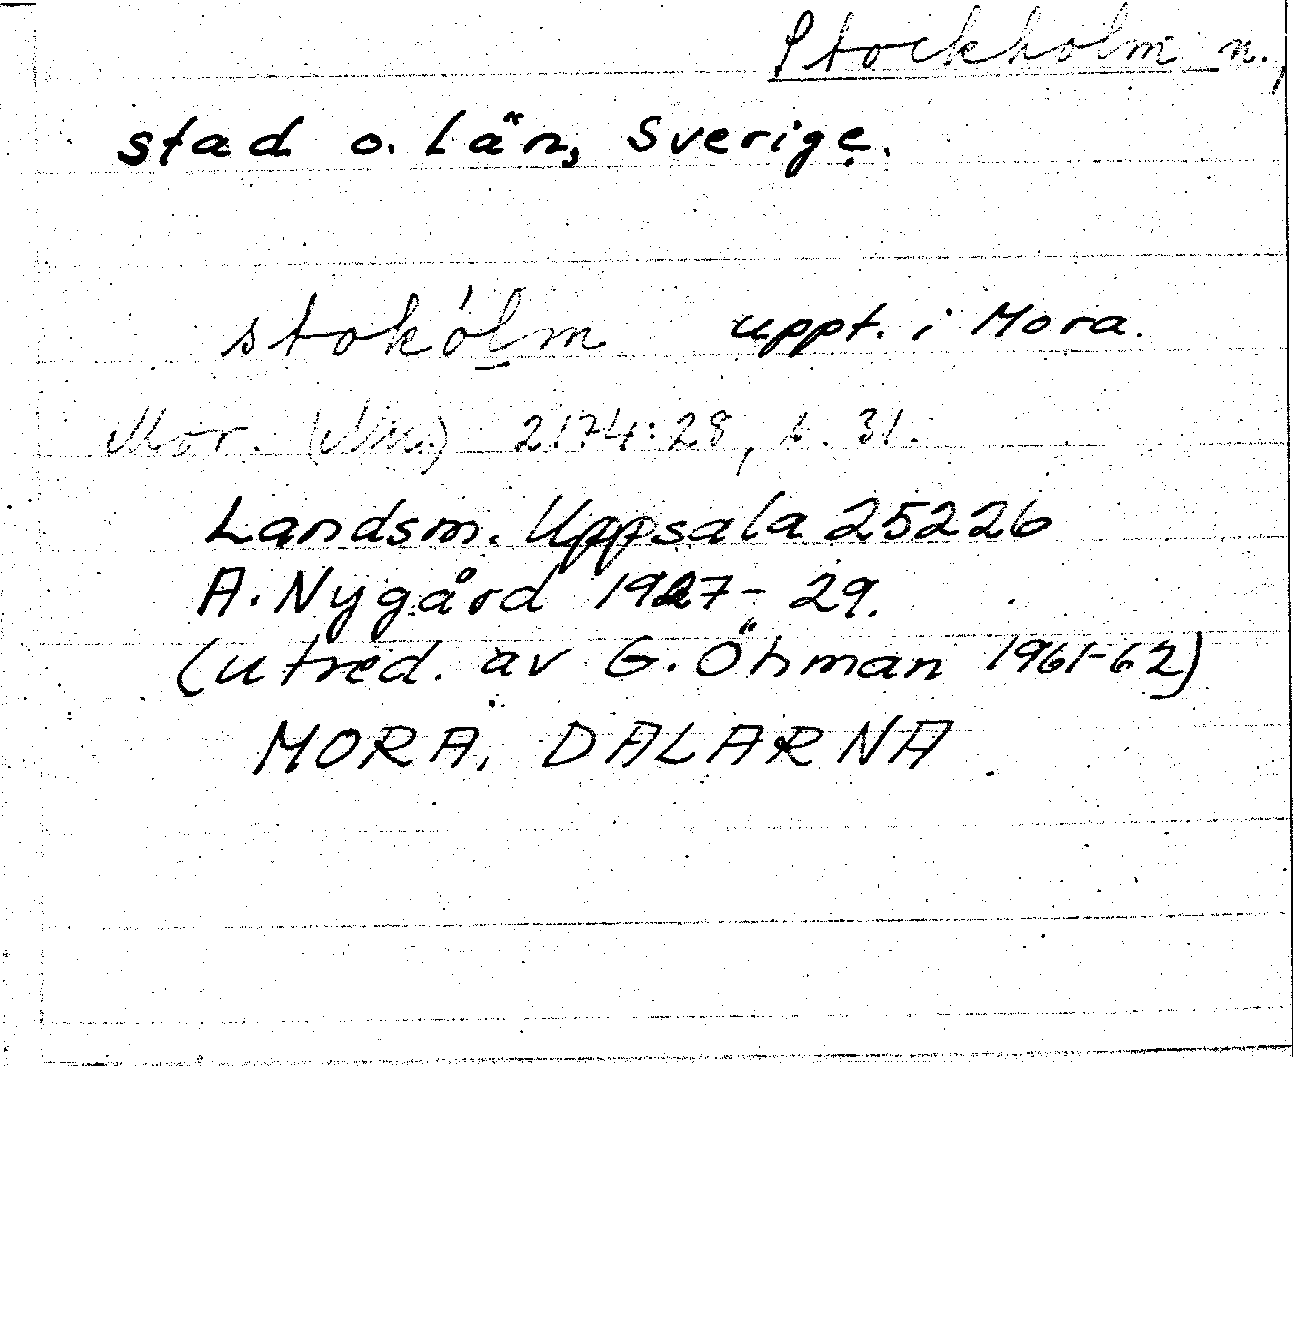 Stockholm n.,
stad o. län, Sverige.
stokólm uppt. i Mora.
Mor. 2174:28, s. 31.
Landsm. Uppsala 25226
A. Nygård 1927-29.
(utred. av G. Öhman 1961-62)
MORA, DALARNA